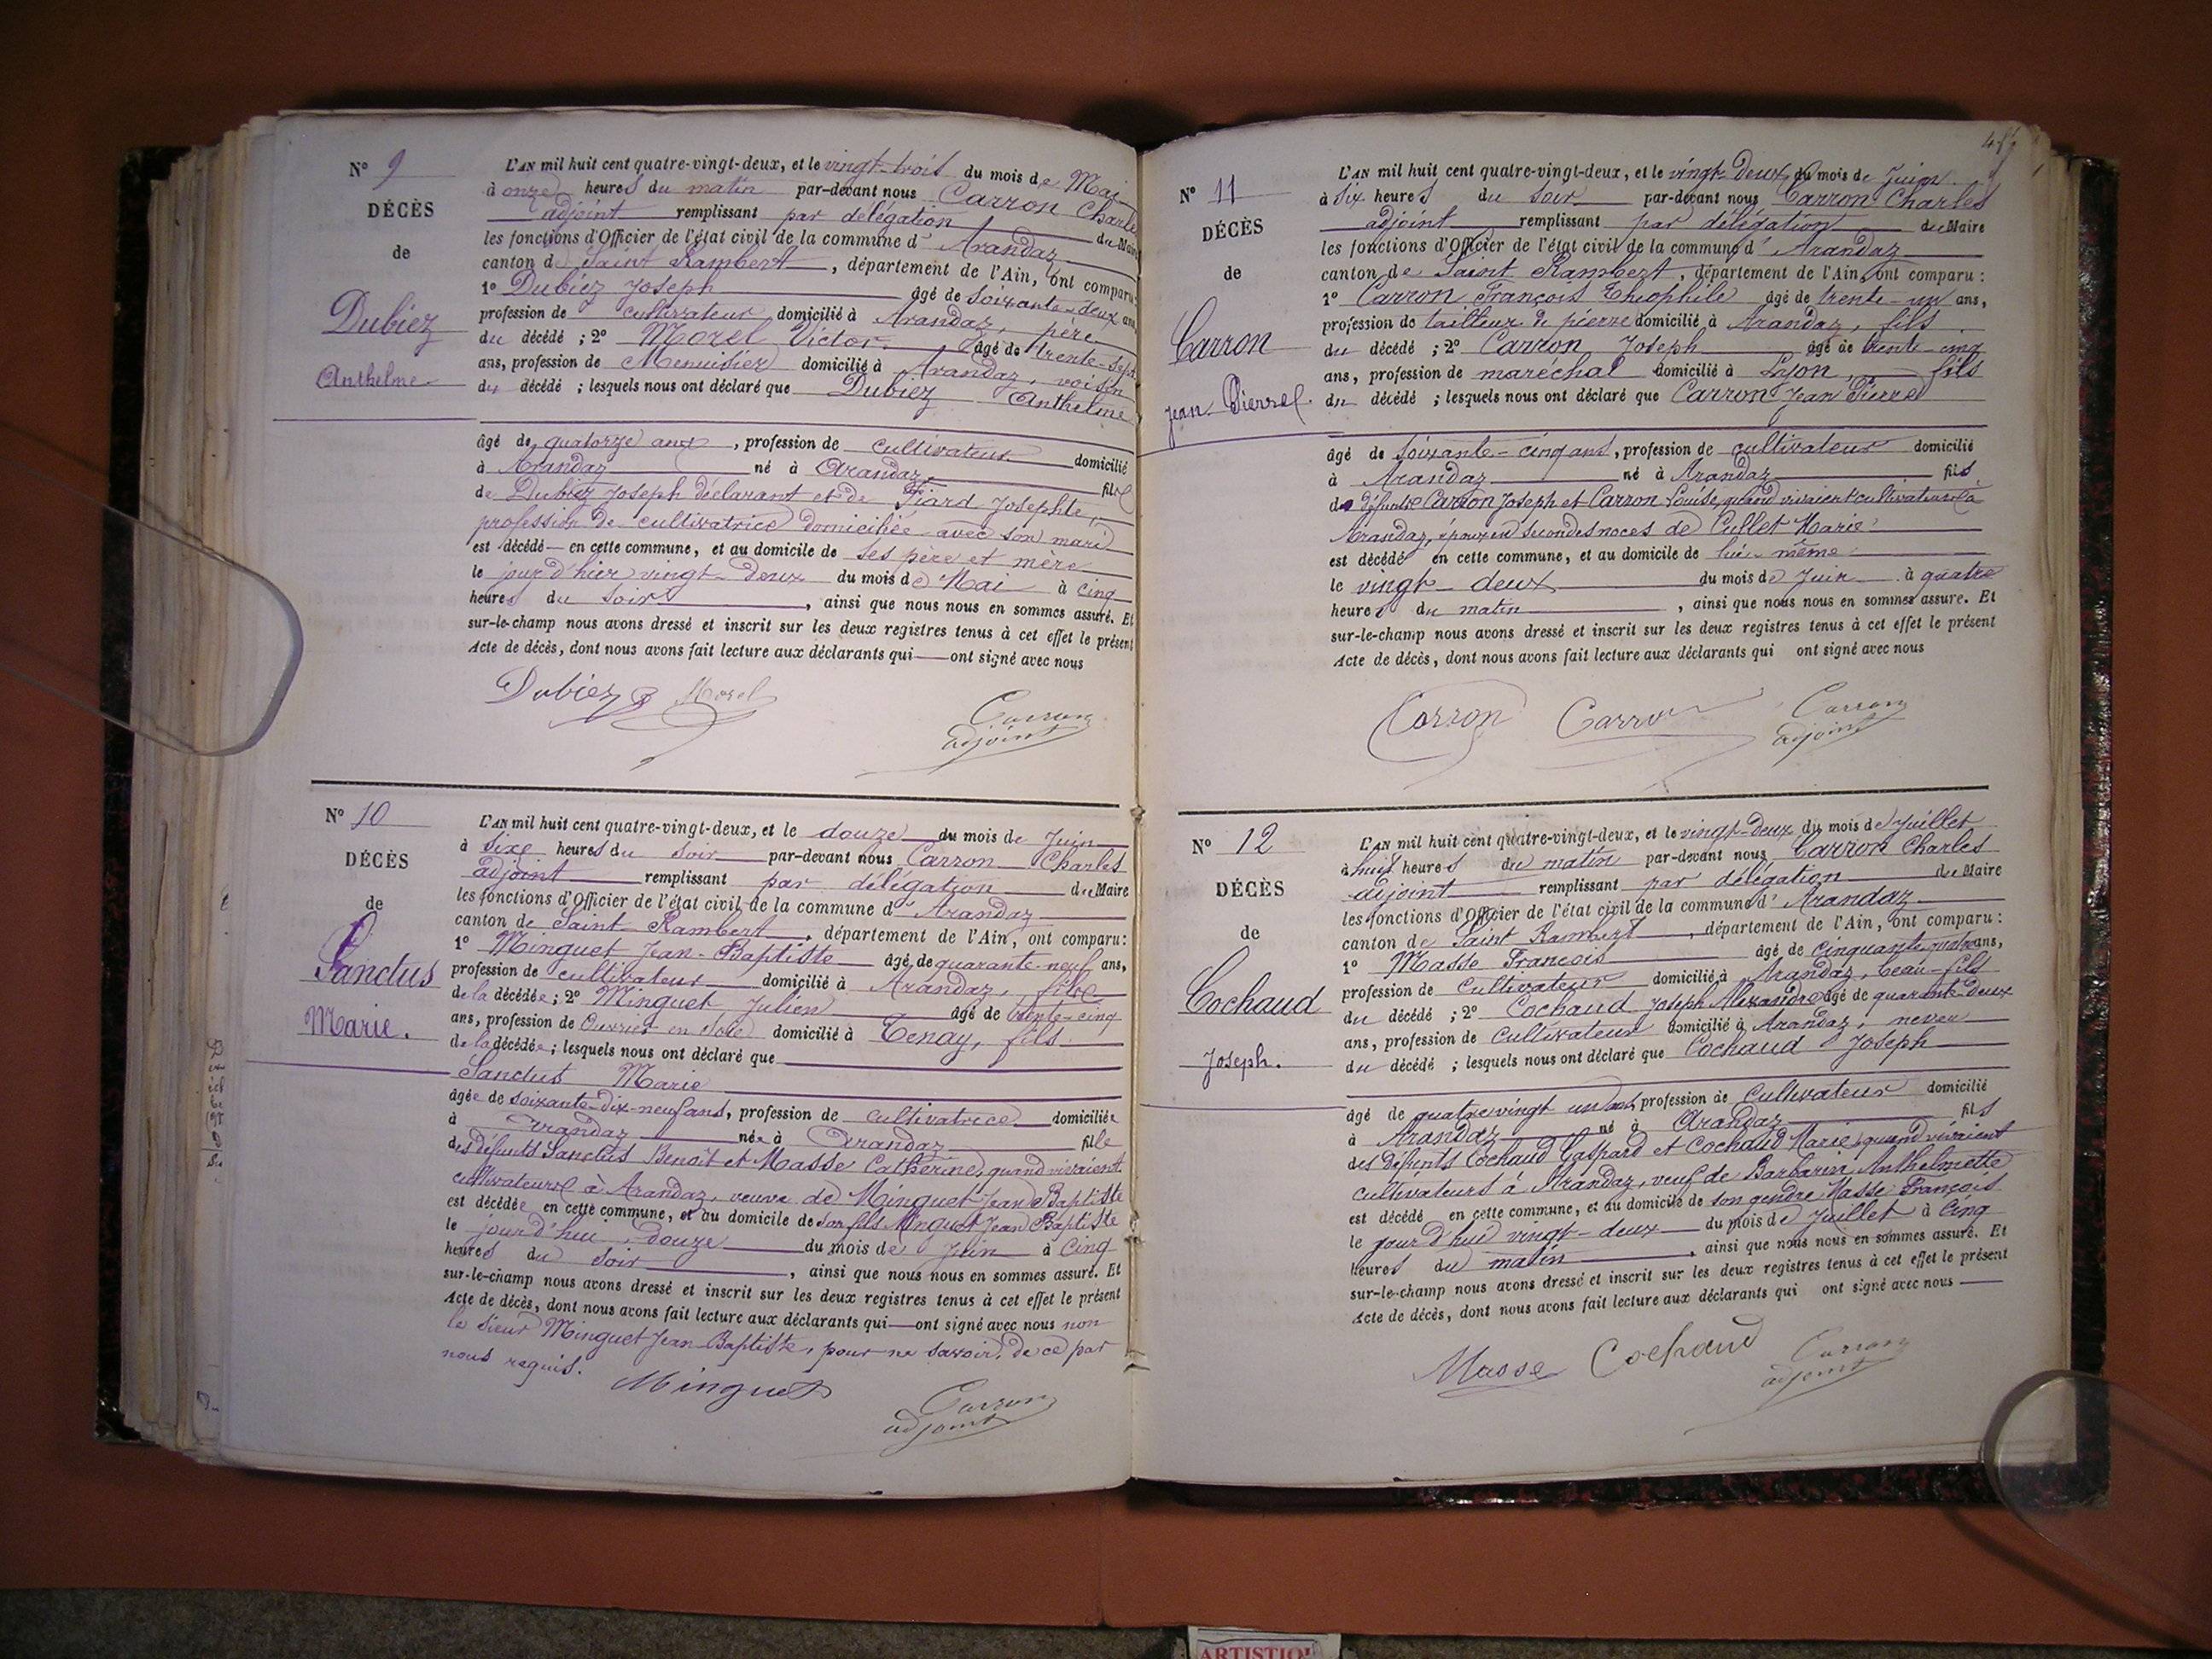 N° 9
DÉCÈS
de
Dubiez
Anthelme
L'AN mil huit cent quatre-vingt-deux, et le vingt-trois du mois de Mai
à onze heures du matin par-devant nous Carron Charles
adjoint remplissant par délégation du Maire
les fonctions d'Officier de l'état civil de la commune d' Arandaz
canton de Saint Rambert, département de l'Ain, ont comparu:
1° Dubiez Joseph âgé de soixante-deux ans
profession de cultivateur domicilié à Arandaz, père
du décédé ; 2° Morel Victor âgé de trente-sept
ans, profession de Menuisier domicilié à Arandaz, voisin
du décédé ; lesquels nous ont déclaré que Dubiez Anthelme
âgé de quatorze ans, profession de cultivateur domicilié
à Arandaz né à Arandaz fils
de Dubiez Joseph déclarant et de Fiard Josephte,
profession de cultivatrice domiciliée avec son mari
est décédé en cette commune, et au domicile de ses père et mère
le jour d'hier vingt-deux du mois de Mai à cinq
heures du soir, ainsi que nous nous en sommes assuré. Et
sur-le-champ nous avons dressé et inscrit sur les deux registres tenus à cet effet le présent
Acte de décès, dont nous avons fait lecture aux déclarants qui ont signé avec nous
Dubiez Morel Carron
adjoint
N° 10
DÉCÈS
de
Sanctus
Marie.
L'AN mil huit cent quatre-vingt-deux, et le douze du mois de Juin
à sixe heures du soir par-devant nous Carron Charles
adjoint remplissant par délégation du Maire
les fonctions d'Officier de l'état civil de la commune d' Arandaz
canton de Saint Rambert, département de l'Ain, ont comparu:
1° Minguet Jean-Baptiste âgé de quarante-neuf ans,
profession de cultivateur domicilié à Arandaz, fils
de la décédée; 2° Minguet Julien âgé de trente-cinq
ans, profession de Ouvrier en soie domicilié à Tenay, fils
de la décédée; lesquels nous ont déclaré que
Sanctus Marie
âgée de soixante-dix-neuf ans, profession de cultivatrice domiciliée
à Arandaz née à Arandaz fille
des défunts Sanctus Benoît et Masse Catherine, quand vivaient
cultivateurs à Arandaz, veuve de Minguet Jean Baptiste
est décédée en cette commune, et au domicile de son fils Minguet Jean Baptiste
le jour d'hui douze du mois de Juin à Cinq
heures du soir, ainsi que nous nous en sommes assuré. Et
sur-le-champ nous avons dressé et inscrit sur les deux registres tenus à cet effet le présent
Acte de décès, dont nous avons fait lecture aux déclarants qui ont signé avec nous non
le sieur Minguet Jean-Baptiste, pour ne savoir, de ce par
nous requis.
Minguet Carron
adjoint
N° 11
DÉCÈS
de
Carron
Jean Pierre.
L'AN mil huit cent quatre-vingt-deux, et le vingt-Deux du mois de Juin
à six heures du soir par-devant nous Carron Charles
adjoint remplissant par délégation du Maire
les fonctions d'Officier de l'état civil de la commune d' Arandaz
canton de Saint Rambert, département de l'Ain, ont comparu:
1° Carron François Théophile âgé de trente-un ans,
profession de tailleur de pierre domicilié à Arandaz, fils
du décédé ; 2° Carron Joseph âgé de trente-cinq
ans, profession de maréchal domicilié à Lyon, fils
du décédé ; lesquels nous ont déclaré que Carron Jean Pierre
âgé de soixante-cinq ans, profession de cultivateur domicilié
à Arandaz né à Arandaz fils
de défunts Carron Joseph et Carron Louise, quand vivaient cultivateurs à
Arandaz, époux en secondes noces de Cullet Marie
est décédé en cette commune, et au domicile de lui-même
le vingt-deux du mois de Juin à quatre
heures du matin, ainsi que nous nous en sommes assuré. Et
sur-le-champ nous avons dressé et inscrit sur les deux registres tenus à cet effet le présent
Acte de décès, dont nous avons fait lecture aux déclarants qui ont signé avec nous
Carron Carron Carron
adjoint
N° 12
DÉCÈS
de
Cochaud
Joseph.
L'AN mil huit cent quatre-vingt-deux, et le vingt-Deux du mois de Juillet
à huit heures du matin par-devant nous Carron Charles
adjoint remplissant par délégation du Maire
les fonctions d'Officier de l'état civil de la commune d' Arandaz
canton de Saint Rambert, département de l'Ain, ont comparu:
1° Masse François âgé de cinquante-quatre ans,
profession de Cultivateur domicilié à Arandaz, beau-fils
du décédé ; 2° Cochaud Joseph Alexandre âgé de quarante-Deux
ans, profession de Cultivateur domicilié à Arandaz, neveu
du décédé ; lesquels nous ont déclaré que Cochaud Joseph
âgé de quatre vingt un ans, profession de Cultivateur domicilié
à Arandaz né à Arandaz fils
des défunts Cochaud Gaspard et Cochaud Marie, quand vivaient
cultivateurs à Arandaz, veuf de Barbarin Anthelmette
est décédé en cette commune, et au domicile de son gendre Masse François
le jour d'hui vingt-deux du mois de Juillet à cinq
heures du matin, ainsi que nous nous en sommes assuré. Et
sur-le-champ nous avons dressé et inscrit sur les deux registres tenus à cet effet le présent
Acte de décès, dont nous avons fait lecture aux déclarants qui ont signé avec nous
Masse Cochaud Carron
adjoint